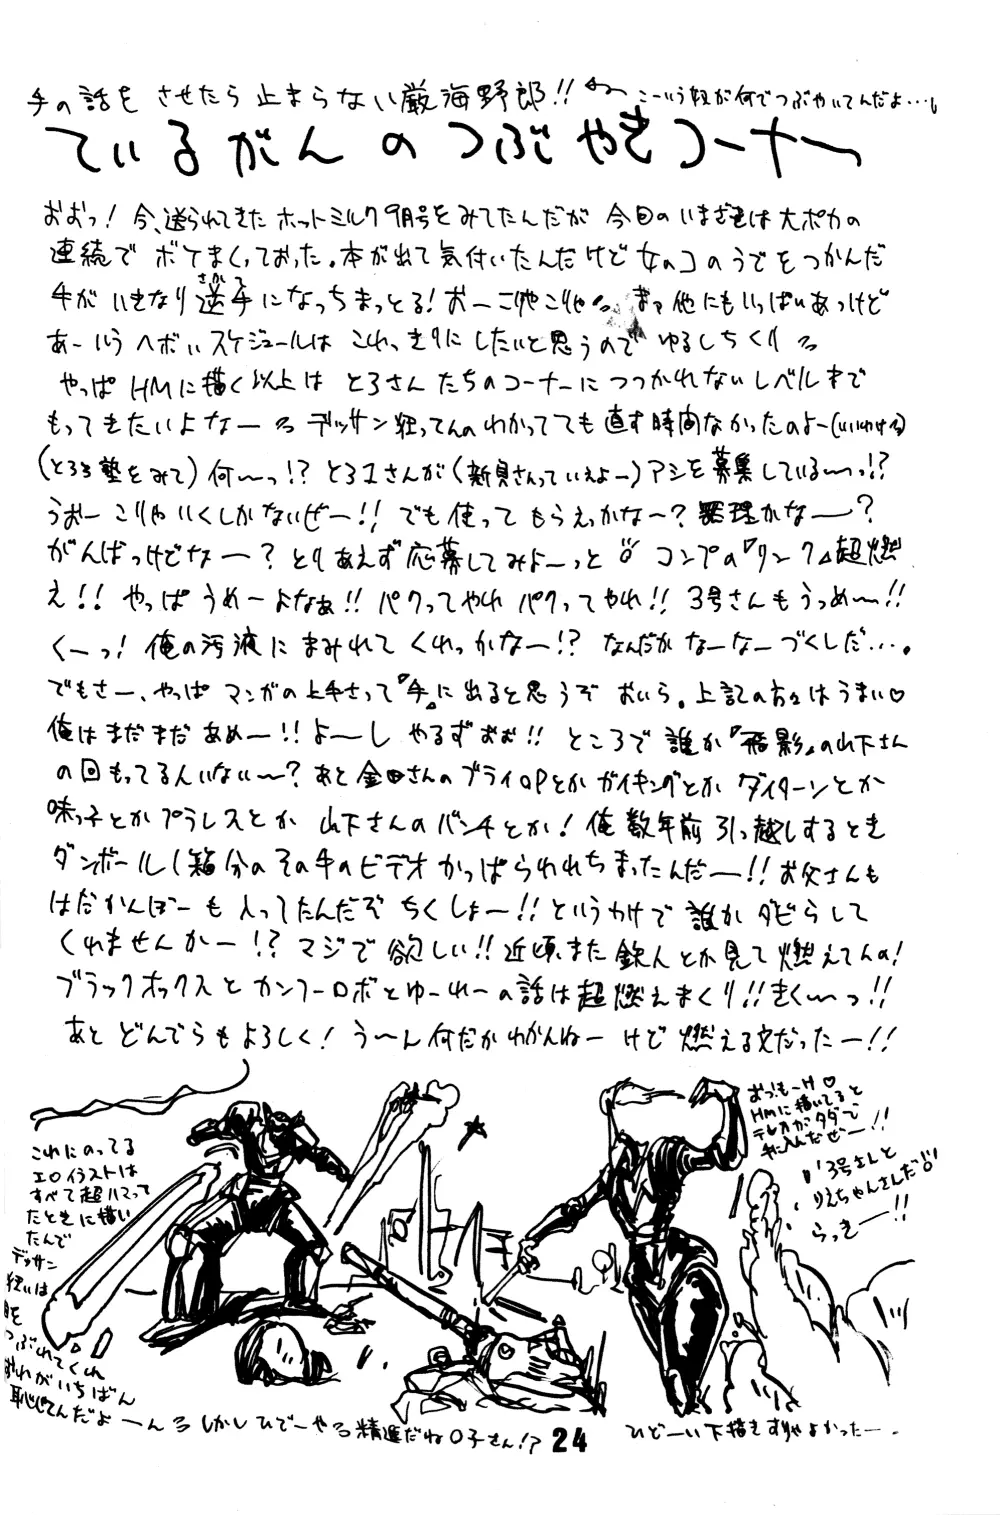 手の話をさせたら止まらない厳海野郎!! こーいう奴が何でつぶやいてんだよ…。
ているがんのつぶやきコーナー
おおっ!今、送られてきたホットミルク9月号をみてたんだが今回のいまざきは大ポカの
連続でボケまくっておった。本が出て気付いたんだけど女のコのうでをつかんだ
手がいきなり逆手になっちまっとる!おーこりゃこりゃ まァ他にもいっぱいあっけど
さかて
あーいうヘボいスケジュールはこれっきりにしたいと思うのでゆるしちくり
やっぱHMに描く以上はとろさんたちのコーナーにつつかれないレベルまで
もってきたいよなー デッサン狂ってんのわかってても直す時間なかったのよー(いいわけ)
(とろろ塾をみて)何〜っ!?とろ1さんが(新貝さんっていえよー)アシを募集している〜っ!?
うおーこりゃいくしかないぜー!!でも使ってもらえっかな〜?無理かなー?
がんばっけどなー?とりあえず応募してみよーっと コンプの『リンク』超燃
え!!やっぱうめーよなぁ!!パクってやれパクってやれ!!3号さんもうっめ〜!!
くーっ!俺の汚液にまみれてくれっかなー!?なんだかなーなーづくしだ…。
でもさー、やっぱマンガの上手さって『手』に出ると思うぞおいら。上記の方々はうまい♡
俺はまだまだあめー!!よ〜しやるずおぉ!!ところで誰か『飛影』の山下さん
の回もってる人いない〜?あと金田さんのブライOPとかガイキングとかダイターンとか
味っ子とかプラレスとか山下さんのバンチとか!俺数年前引っ越しするとき
ダンボール1箱分のその手のビデオかっぱらわれちまったんだー!!お父さんも
はだかんぼーも入ってたんだぞちくしょー!!というわけで誰かダビらして
くれませんかー!?マジで欲しい!!近頃また鉄人とか見て燃えてんの!
ブラックオックスとカンフーロボとゆーれーの話は超燃えまくり!!きく〜っ!!
あとどんでらもよろしく!う〜ん何だかわかんねーけど燃える文だったー!!
おっ!もーH♡
HMに描いてると
テレカがタダで
手に入んだぜー!!
3号さんと
りえちゃんさんだ
らっきー!!
これにのってる
エロイラストは
すべて超ハマって
たときに描い
たんで
デッサン
狂いは
目を
つぶれてくれ
おれがいちばん
恥じてんだよーん しかしひでーや 精進だねO子さん!?
24
ひどーい下描きすりゃよかったー